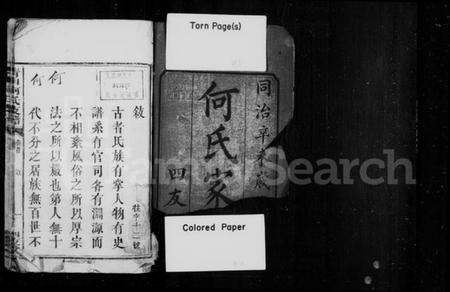 Torn Page(s)
同治辛未歲
何氏家
四友
Colored Paper
敘
古者氏族有掌人物有史
譜系有官司各有淵源而
不相紊風俗之所以厚宗
法之所以嚴也第人無十
何
代不分之居族無百世不
何
FamilySearch